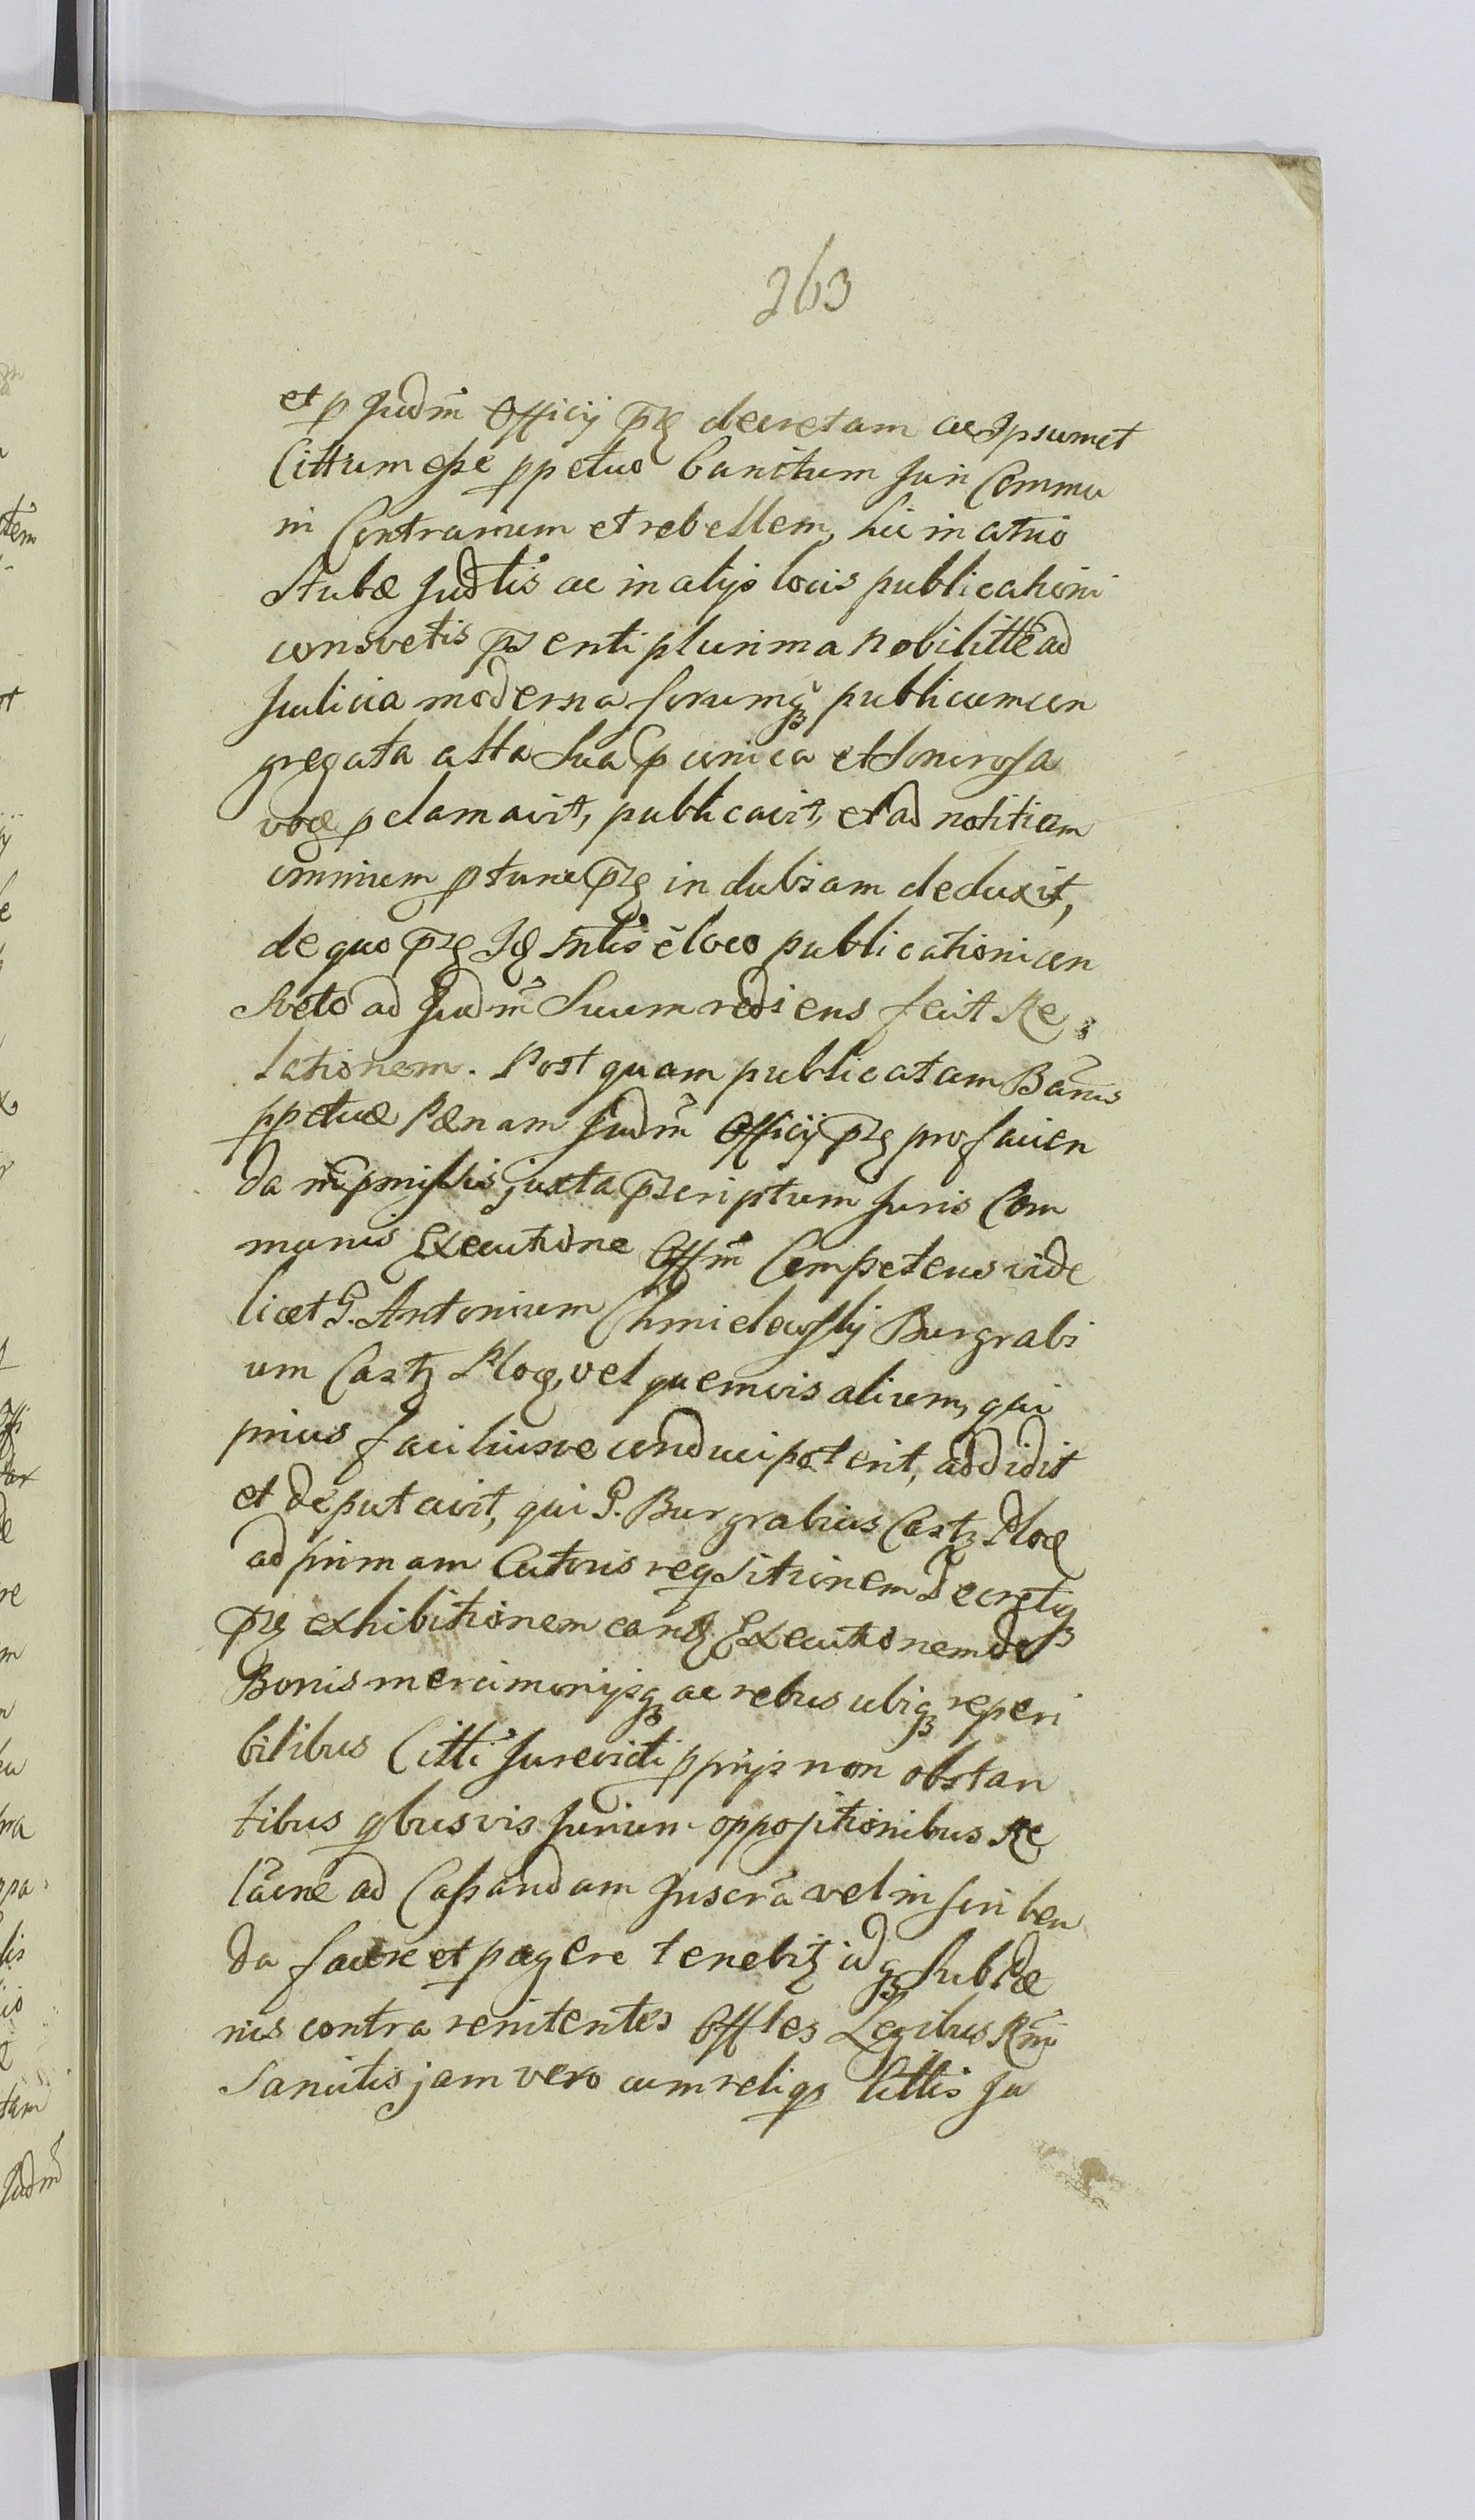 363
et p Judm̃ Officij p̃ȩ decretam ac Ipsumet
Cittum esse ppetuo banitum Juri Commu
ni Contrarium et rebellem, hic in atrio
Stubæ Judtis ac in alijs locis publicationi
consvetis p̃senti plurima Nobilitte ad
Judicia moderna forumq̃ publicum con
gregata alta Sua p conica et Sonorosa
voce pclamavit, publicavit, et ad notitiam
omnium ptunc p̃ȩ indubiam deduxit,
de quo p̃ȩ Jȩ Mntlis è loco publicationi con
Sveto ad Judm̃ Suum rediens fecit Re
lationem. Post quam publicatam Banis
ppetuæ Pænam Judm̃ Officij p̃ȩ pro facien
da in p̃missis juxta p̃scriptum Juris Com
munis Executione Offm̃ Competens vide
licet G. Antonium Chmielewskij Burgrabi
um Castȝ Ploc, vel quemvis alium, qui
prius faciliusve conduci poterit, addidit
et deputavit, qui G. Burgrabius Castȝ Ploc
ad primam Actoris reqsitionem Decretiq
p̃ȩ exhibitionem eandȩ Executionem de
Bonis mercimonijsq ac rebus ubiq reperi
bilibus Citti Jurevicti pprijs non obstan
tibus qbusvis Jurium oppositionibus Re
lãone ad Cassandam Juscrã vel inscriben
da facere et pagere tenebiȝ idq Sub Pæ
nis contra renitentes Offles Legibus Rni
Sancitis jam vero cum reliqs Cittis Ju